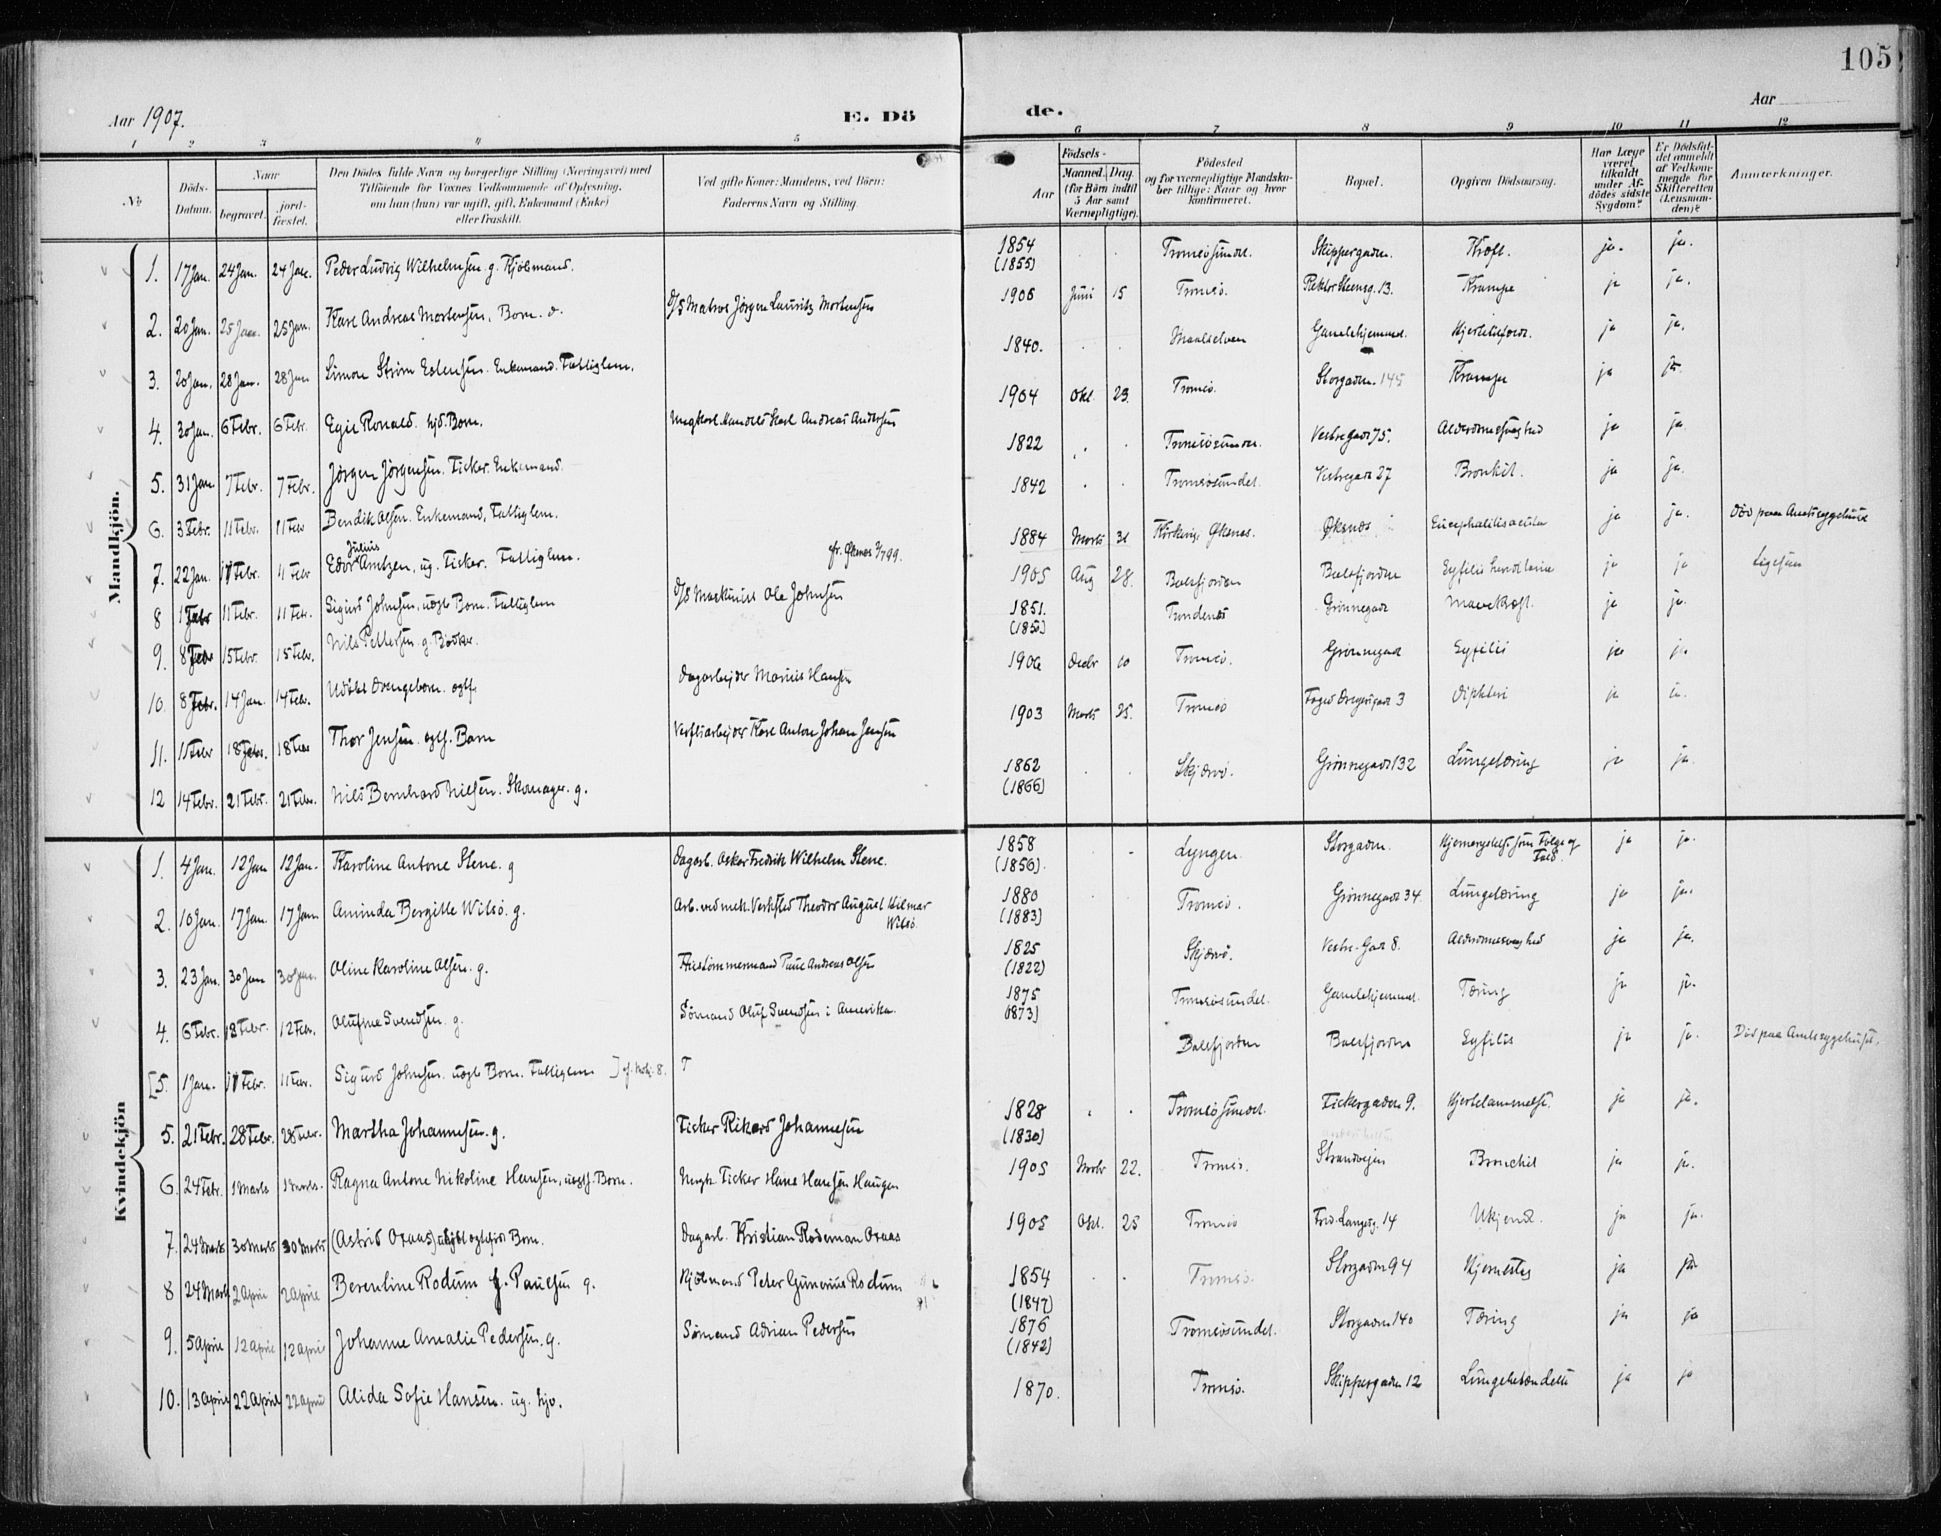 105
Aar 1907.
E. Dö
de.
Aar
1 2 3 4 5 6 7 8 9 10 11 12
№
Döds-Datum.
Naar
begravet.
jordfæstet.
Den Dödes fulde Navn og borgerlige Stilling (Næringsvei) med
Tilföiende for Voxnes Vedkommende af Oplysning,
om han (hun) var ugift, gift, Enkemand (Enke)
eller fraskilt.
Ved gifte Koner: Mandens, ved Börn:
Faderens Navn og Stilling.
Födsels-
Aar
Maaned. Dag.
(for Börn indtil
5 Aar samt
Værnepligtige).
Födested
og for værnepligtige Mandskaber tillige: Naar og hvor
konfirmeret.
Bopæl.
Opgiven Dödsaarsag.
Har Læge
været
tilkaldt
under Afdödes sidste
Sygdom?
Er Dödsfaldet anmeldt
af Vedkommende for
Skifteretten
(Lensmanden)?
Anmerkninger.
Mandkjön.
1. 17 Jan. 24 Jan. 24 Jan. Peder Ludvig Wilhelmsen g. Kjöbmand. 1854 (1855) Tromsösundet. Skippergaden. Kræft. ja. ja.
2. 20 Jan. 25 Jan. 25 Jan. Karl Andreas Mortensen, Barn. D/S Matros Jörgen Lauritz Mortensen 1906 Juni 15 Tromsö. Rektor Steensg. 13. Krampe ja ja.
3. 20 Jan. 28 Jan. 28 Jan Simon Ström Esbensen. Enkemand. Fattiglem. 1840. Maalselven Gamlehjemmet. Hjertelfeil ja ja.
4. 30 Jan. 6 Febr. 6 Febr. Egil Ronald. Barn. Karl Andreas Andersen 1904 Okt. 23. Tromsö. Storgaden 145 Krampe ja ja
5. 31 Jan 7 Febr. 7 Febr. Jörgen Jörgensen. Fisker. Enkemand. 1822 Tromsösundet. Vestregade 75. Alderdomssvaghed ja ja
6. 3 Febr. 11 Febr. 11 Febr Bendik Olsen. Enkemand, Fattiglem. 1842 Tromsösundet. Vestregade 27 Bronkit. ja ja.
7. 22 Jan. 11 Febr. 11 Febr Edvor Julius Arntzen, ug. Fisker. Fattiglem. 1884 Marts 31 Øksnes. Øksnes Encephalitis acuta ja ja. Död paa Amtssygehuset
8 1 Febr 11 Febr. 11 Febr. Sigurd Johnsen, uægte Barn. Fattiglem D/S Maskinist Ole Johnsen 1905 Aug 28. Balsfjorden Balsfjorden Syfilis ja ja Ligesaa
9. 8 Febr 15 Febr. 15 Febr. Nils Pettersen g. Bödker. 1851. (1850) Trondenes Grönnegade Mavekræft. ja ja.
10. 8 Febr. 14 Jan. 14 Febr. Udöbt Drengebarn. ægtf. Dagarbejder Marius Hansen 1906 Decbr 10 Tromsö. Grönnegad Syfilis ja ja.
11. 11 Febr 18 Febr. 18 Febr Thor Jensen. ægtf. Barn Verftsarbejder Karl Anton Johan Jensen 1903 Marts 25. Tromsö Foged Dreyersgade 3 Difteri ja
12 14 Febr. 21 Febr. 21 Febr. Nils Bernhard Nilsen. Skomager. g. 1862 (1866) Skjærvö. Grönnegade 132 Lungetæring ja ja.
Kvindekjön
1. 4 Jan. 12 Jan 12 Jan. Karoline Antone Stene. g Dagarb. Oskar Fredrik Wilhelm Stene. 1858 (1856). Lyngen. Storgaden. Hjernerystelse som Fölge af Fald. ja ja.
2. 10 Jan. 17 Jan. 17 Jan Aminda Bergitte Wilsö. g. Arb. ved mek. Verksted Theodor August Hilmar Wilsö. 1880 (1883) Tromsö. Grönnegade 34 Lungetæring ja ja.
3. 23 Jan. 30 Jan 30 Jan. Oline Karoline Olsen. g. Hustömmermand Paul Andreas Olsen 1825 (1822) Skjærvö. Vestre Gade 8. Alderdomssvaghed ja ja.
4. 6 Febr. 12 Febr. 12 Febr. Olufine Svendsen. g. Sömand Oluf Svendsen i Amerika. 1875 (1873) Tromsösundet. Gamlehjemmet. Tæring ja ja.
[5. 1 Jan. 11 Febr. 11 Febr. Sigurd Johnsen. uægte Barn. Fattiglem] cf. 8. Balsfjorden Balsfjorden Syfilis ja ja. Död paa Amtssygehuset.
5. 21 Febr. 28 Febr. 28 Febr. Martha Johannesen. g. Fisker Rikard Johannesen 1828 (1830) Tromsösundet. Fiskergaden 9. Hjertelammelse. ja ja.
6. 24 Febr. 1 Marts 1 Marts. Ragna Antone Nikoline Hansen, uægtf. Barn. Fisker Hans Hansen Haugen 1905 Novbr 22. Tromsö. Strandvejen Bronchit ja ja.
7. 24 Marts 30 Marts 30 Marts (Astrid Oraas) ægtefödt Barn. Dagarb. Kristian Rodeman Oraas 1905 Okt. 25 Tromsö Fred. Langesg. 14 Ukjendt. ja ja.
8 24 Marts 2 April 2 April Berentine Rodum f. Paulsen g. Kjöbmand Peter Gunerius Rodum 1854 (1847) Tromsö. Storgaden 94 ja ja
9. 5 April 12 April 12 April Johanne Amalie Pedersen. g. Sömand Adrian Pedersen 1876 (1842) Tromsösundet. Storgaden 140 Tæring ja ja
10. 13 April 22 April 22 April Alida Sofie Hansen. ug. 1870. Tromsö. Skippergaden 12 Lungebetændelse ja ja